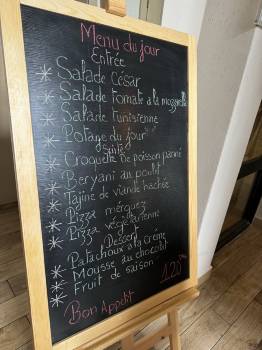 Menu du jour
Entrée
* Salade César
* Salade tomate a la mozzarella
* Salade tunisienne
* Potage du jour
Suite
* Croquette de poisson panné
* Beryani au poulet
* Tajine de viande hachée
* Pizza merguez
* Pizza végétarienne
Dessert
* Patachoux a la crème
* Mousse au chocolat
* Fruit de saison
120
Bon Appétit